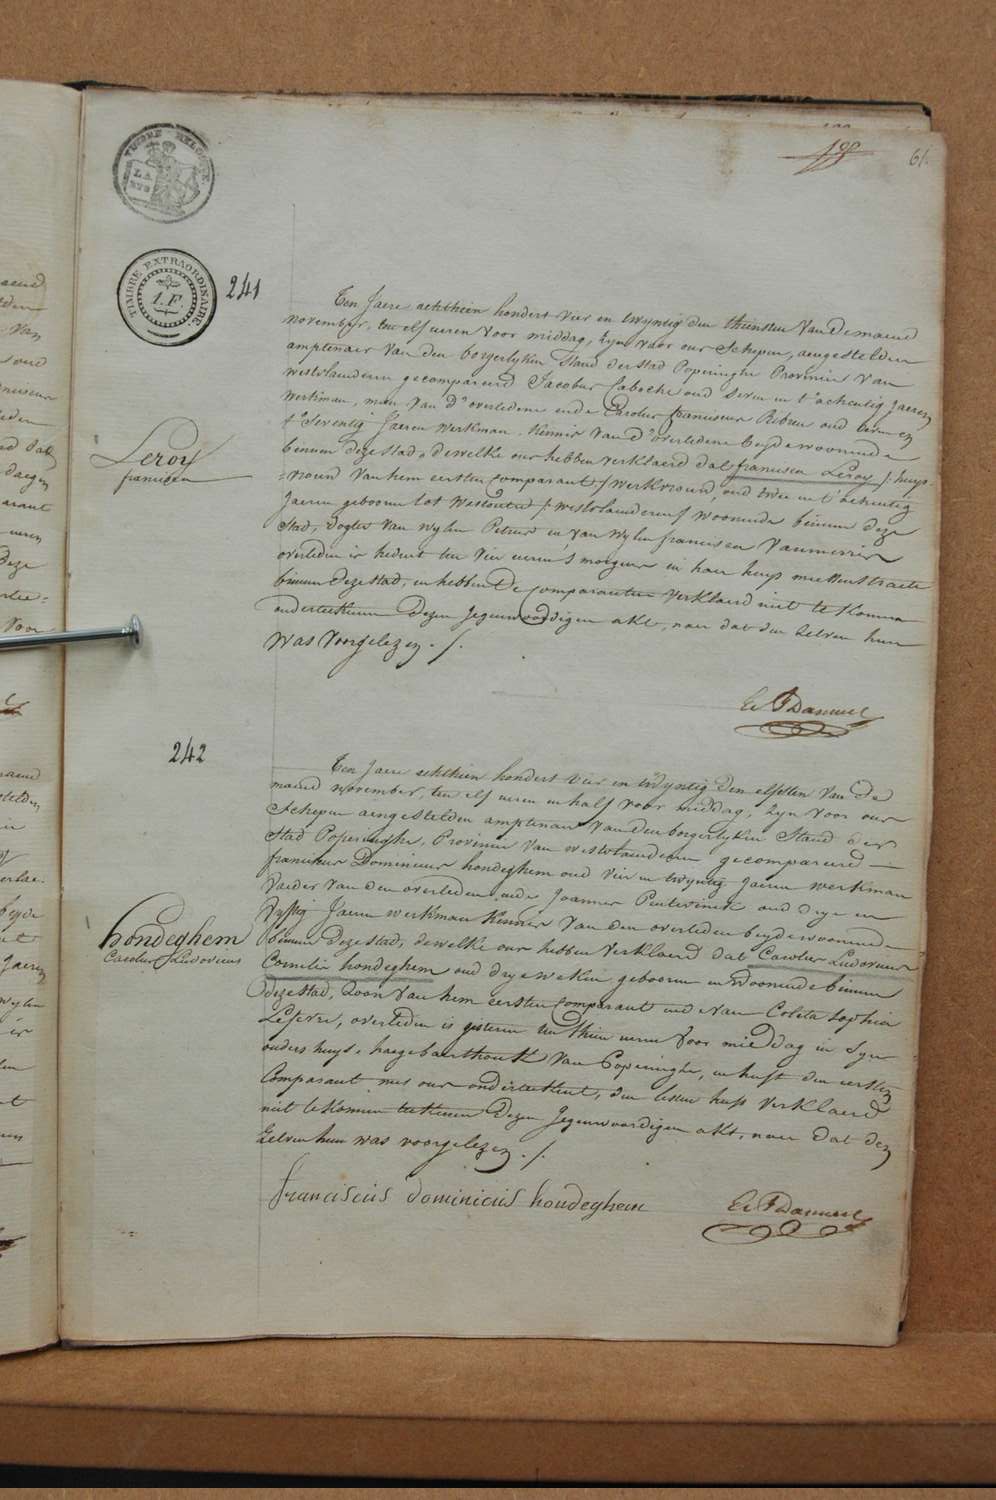 198 61.
TIMBRE EXTRAORDINAIRE.
1. F.
241
Ten Jaere achthien hondert vier en twyntig den thiensten van de maend
november, ten elf uren voor middag, zyn voor ons Schepen, aengestelden
amptenaer van den borgerlyken Stand der stad Poperinghe Provincie van
westvlaenderen gecompareerd Jacobus Caboche oud seven en t'achentig Jaeren
Werkman, man van d'overledene ende Carolus franciscus Ribreu oud
t'Seventig Jaeren Werkman Kennis van d'overledene beyde woonende
binnen deze stad, dewelke ons hebben verklaerd dat francisca Leroy /: huys
=vrouw van hem eersten Comparant :/ Werkvrouw, oud twee en t'achentig
Jaeren geboren tot Westoutre /: westvlaenderen :/ woonende binnen deze
Stad, Dogter van wylen Petrus en van wylen francisca Vanmerris
overleden is heden ten vier uren 's morgens in haer huys
binnen deze stad, en hebben De Comparanten verklaerd niet te konnen
onderteekenen Dezen Jegenwoordigen akt, naer dat den zelven hun
Was Voorgelezen. /.
Leroy
francisca
242
Ten Jaere achthien hondert vier en twyntig Den elfsten van de
maend november, ten elf uren en half voor middag, zyn voor ons
Schepen aengestelden amptenaer van den borgerlyken Stand der
Stad Poperinghe, Provincie van westvlaenderen gecompareerd —
franciscus Dominicus hondeghem oud vier en twyntig Jaeren werkman
Vader van den overleden ende Joannes oud drye en
Vyftig Jaeren werkman Kennis van den overleden beyde woonende
binnen deze stad, dewelke ons hebben verklaerd dat Carolus Ludovicus
Cornelis hondeghem oud drye weken geboren en woonende binnen
deze stad, Zoon van hem eersten Comparant ende van Coleta Sophia
Lefevre, overleden is gisteren ten thien uren Voor middag in Syn
ouders huys, van Poperinghe, en heeft den eersten
Comparant met ons onderteekent, den tweeden heeft verklaerd
niet te konnen teekenen Dezen Jegenwoordigen akt, naer dat den
Zelven hun was voorgelezen. /.
hondeghem
Carolus Ludovicus
franciscus dominicus hondeghem